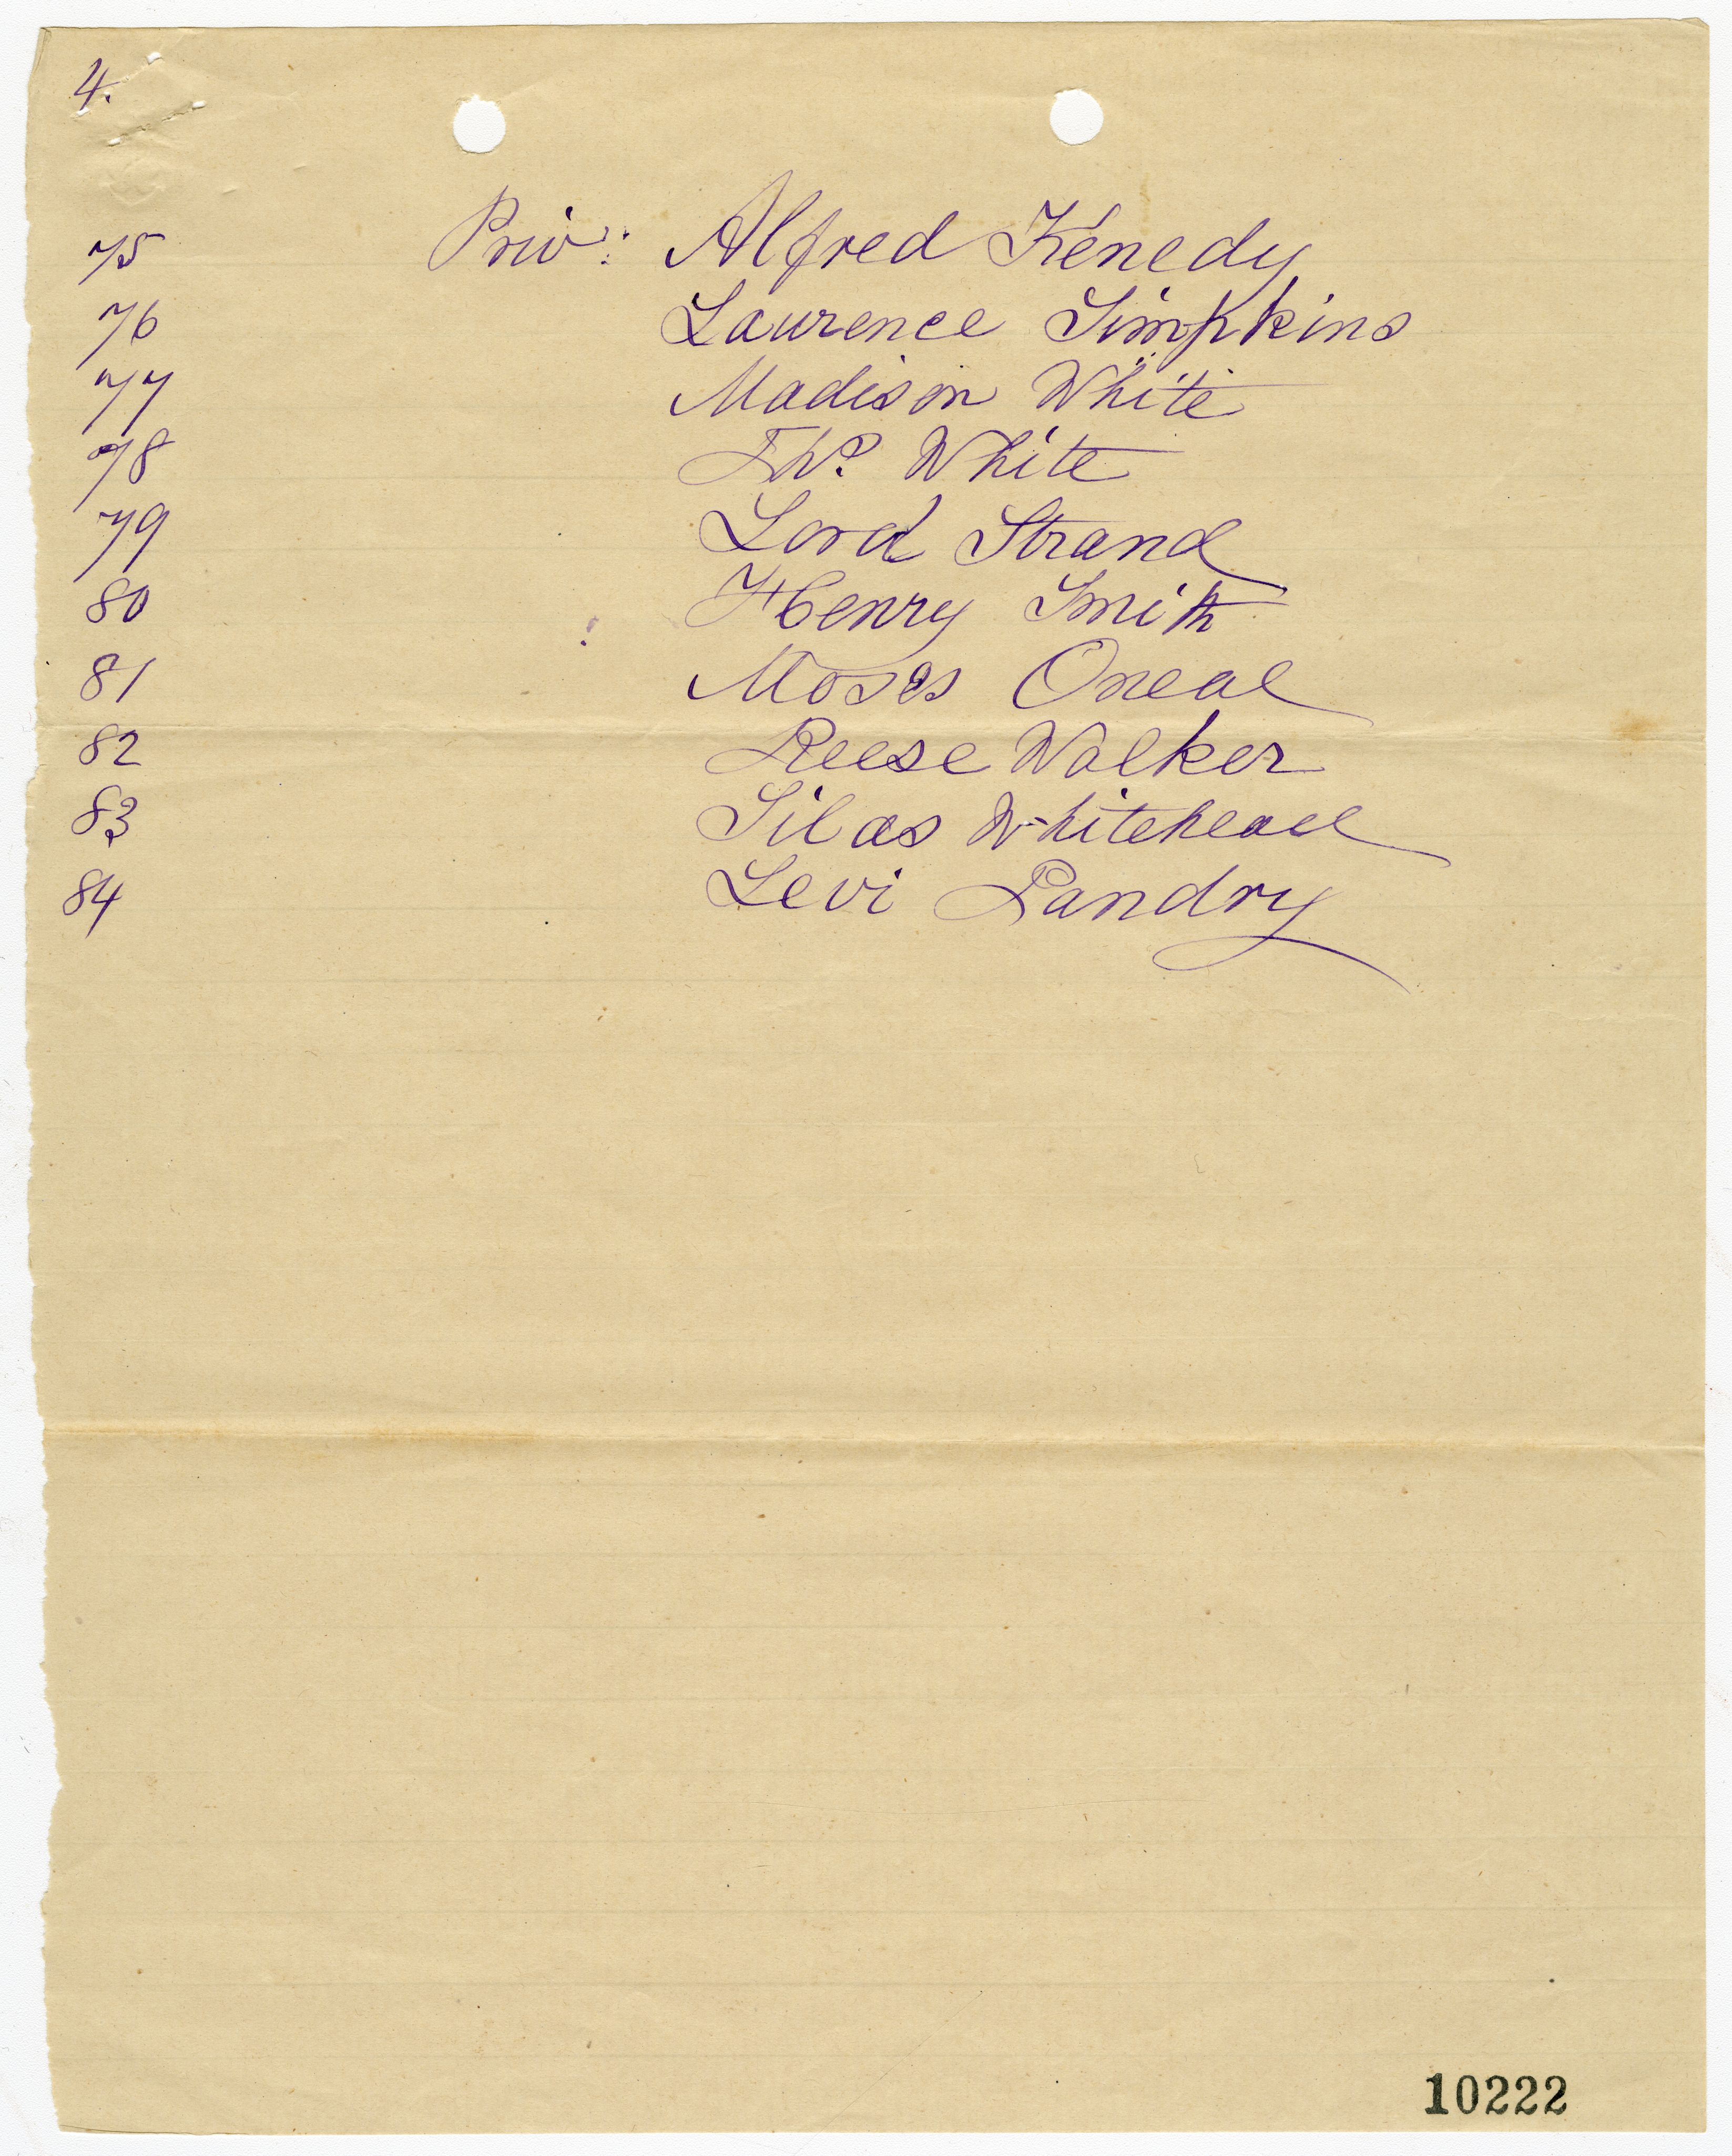 4.
75 Priv: Alfred Kenedy
76 Laurence Simpkins
77 Madison White
78 Tho? White
79 Lord Strand
80 Henry Smith
81 Moses Oneal
82 Reese Walker
83 Silas Whitehead
84 Levi Landry
10222